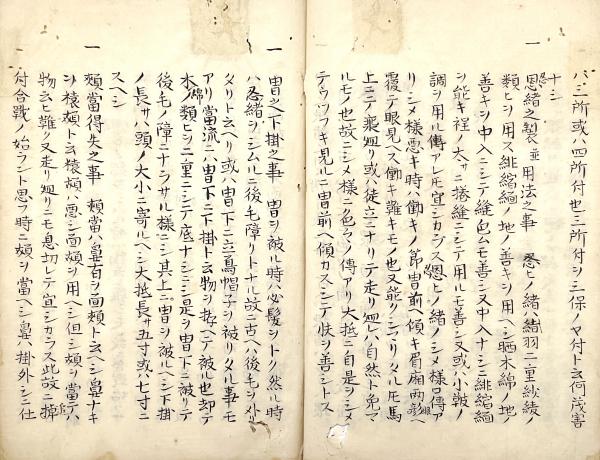 ハ三所或ハ四所付也三所付ヲ三保ノマ付ト云何茂害
十シ
一 忍緒之製並用法之事 忍ヒノ緒ハ緒羽二重紗綾ノ
類ヒヲ用ス緋縮緬ノ地ノ善キヲ用ヘシ晒木綿ノ地ノ
善キヲ中入ニシテ縫包ムモ善シ又中入ナシニ緋縮緬
ヲ能キ程ノ太サニ捲縫ニシテ用ルモ善シ又或ハ小鞁ノ
調ヲ用ル傳アレ𪜈宜シカラス忍ヒノ緒ノシメ様口傳ア
リシメ様悪キ時ハ働キノ節冑前ヘ傾キ眉廂両眼ヘ
覆テ眼見ヘス働キ難キモノ也又能クシマリタル𪜈馬
上ニテ乗廻リ或ハ徒立ニナリテ走リ廻レハ自然ト免マ
ルモノ也故ニシメ様ニ色々ノ傳アリ大抵ニ自是ヲシメ
テウツフキ見ルニ冑前ヘ傾カスシテ快ヲ善シトス
一 冑之下掛之事 冑ヲ被ル時ハ必髪ヲトク然ル時
ハ忍緒ヲシムルニ後毛障リトナル故ニ古ヘハ後毛ヲ外
タリト云ヘリ或ハ冑下ニ立烏帽子ヲ被リタル事モ
アリ當流ニハ冑下ニ下掛ト云物ヲ拵ヘテ被ル也却テ
木綿ノ類ヒヲ二重ニシテ底ナシニシ是ヲ冑下ニ被リテ
後毛ノ障ニナラサル様ニシ其上ニ冑ヲ被ルヘシ下掛
ノ長サハ頭ノ大小ニ寄ルヘシ大抵長サ五寸或ハ七寸ニ
スヘシ
一 頬當得失之事 頬當ハ鼻有ヲ面頬ト云ヘシ鼻ナキ
ヲ猿頬ト云猿頬ハ悪シ面頬ヲ用ヘシ但シ頬ヲ當テハ
物云ヒ難ク又走リ廻リニモ息切レテ宜シカラス此故ニ掉
付合戰ノ始ラント思フ時ニ頬ヲ當ヘシ鼻ハ掛外シニ仕